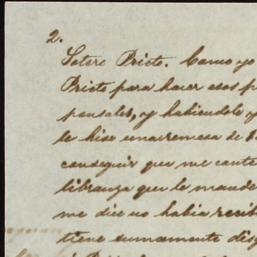 2.
Sotero Prieto. Como yo
Prieto para hacer esos p
ponsales, y habiendole y
le hise una remesa de
conseguir que me conte
libranza que le mande
me dice no habia recib
tiene sumamente disg